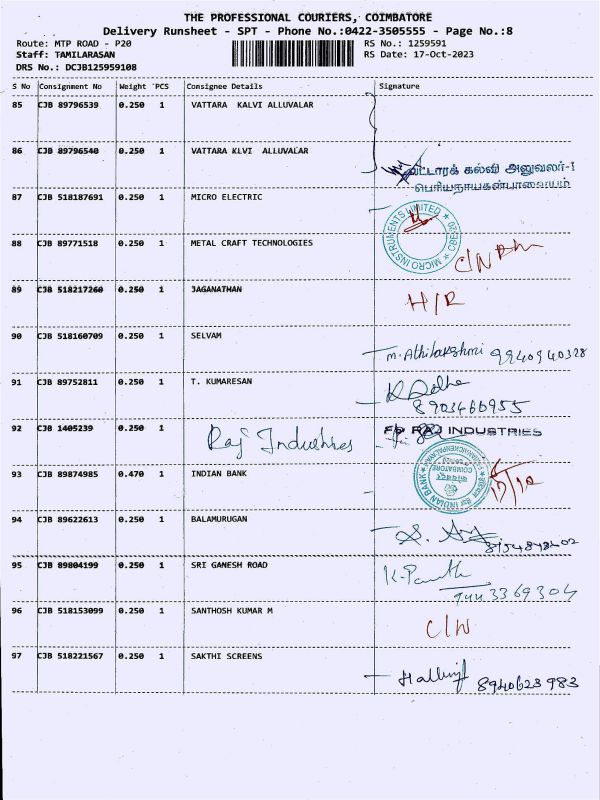 THE PROFESSIONAL COURIERS, COIMBATORE
Delivery Runsheet - SPT - Phone No.:0422-3505555 - Page No.:8
Route: MTP ROAD - P20 RS No.: 1259591
Staff: TAMILARASAN RS Date: 17-Oct-2023
DRS No.: DCJB125959108
S No Consignment No Weight PCS Consignee Details Signature
85 CJB 89796539 0.250 1 VATTARA KALVI ALLUVALAR
86 CJB 89796540 0.250 1 VATTARA KLVI ALLUVALAR
வட்டாரக் கல்வி அலுவலர்-1
பெரியநாயக்கன்பாளையம்
87 CJB 518187691 0.250 1 MICRO ELECTRIC
MICRO INSTRUMENTS LIMITED CBE-20
88 CJB 89771518 0.250 1 METAL CRAFT TECHNOLOGIES C/N
89 CJB 518217260 0.250 1 JAGANATHAN H/R
90 CJB 518160709 0.250 1 SELVAM
M. Athilakshmi 9940940328
91 CJB 89752811 0.250 1 T. KUMARESAN
8903460955
92 CJB 1405239 0.250 1 Raj Industries
RAJ INDUSTRIES
93 CJB 89874985 0.470 1 INDIAN BANK
INDIAN BANK COIMBATORE
94 CJB 89622613 0.250 1 BALAMURUGAN
95 CJB 89804199 0.250 1 SRI GANESH ROAD
96 CJB 518153099 0.250 1 SANTHOSH KUMAR M C/N
97 CJB 518221567 0.250 1 SAKTHI SCREENS
8940623983